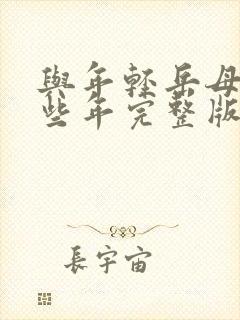 與年輕岳母
些年完整版
長宇宙